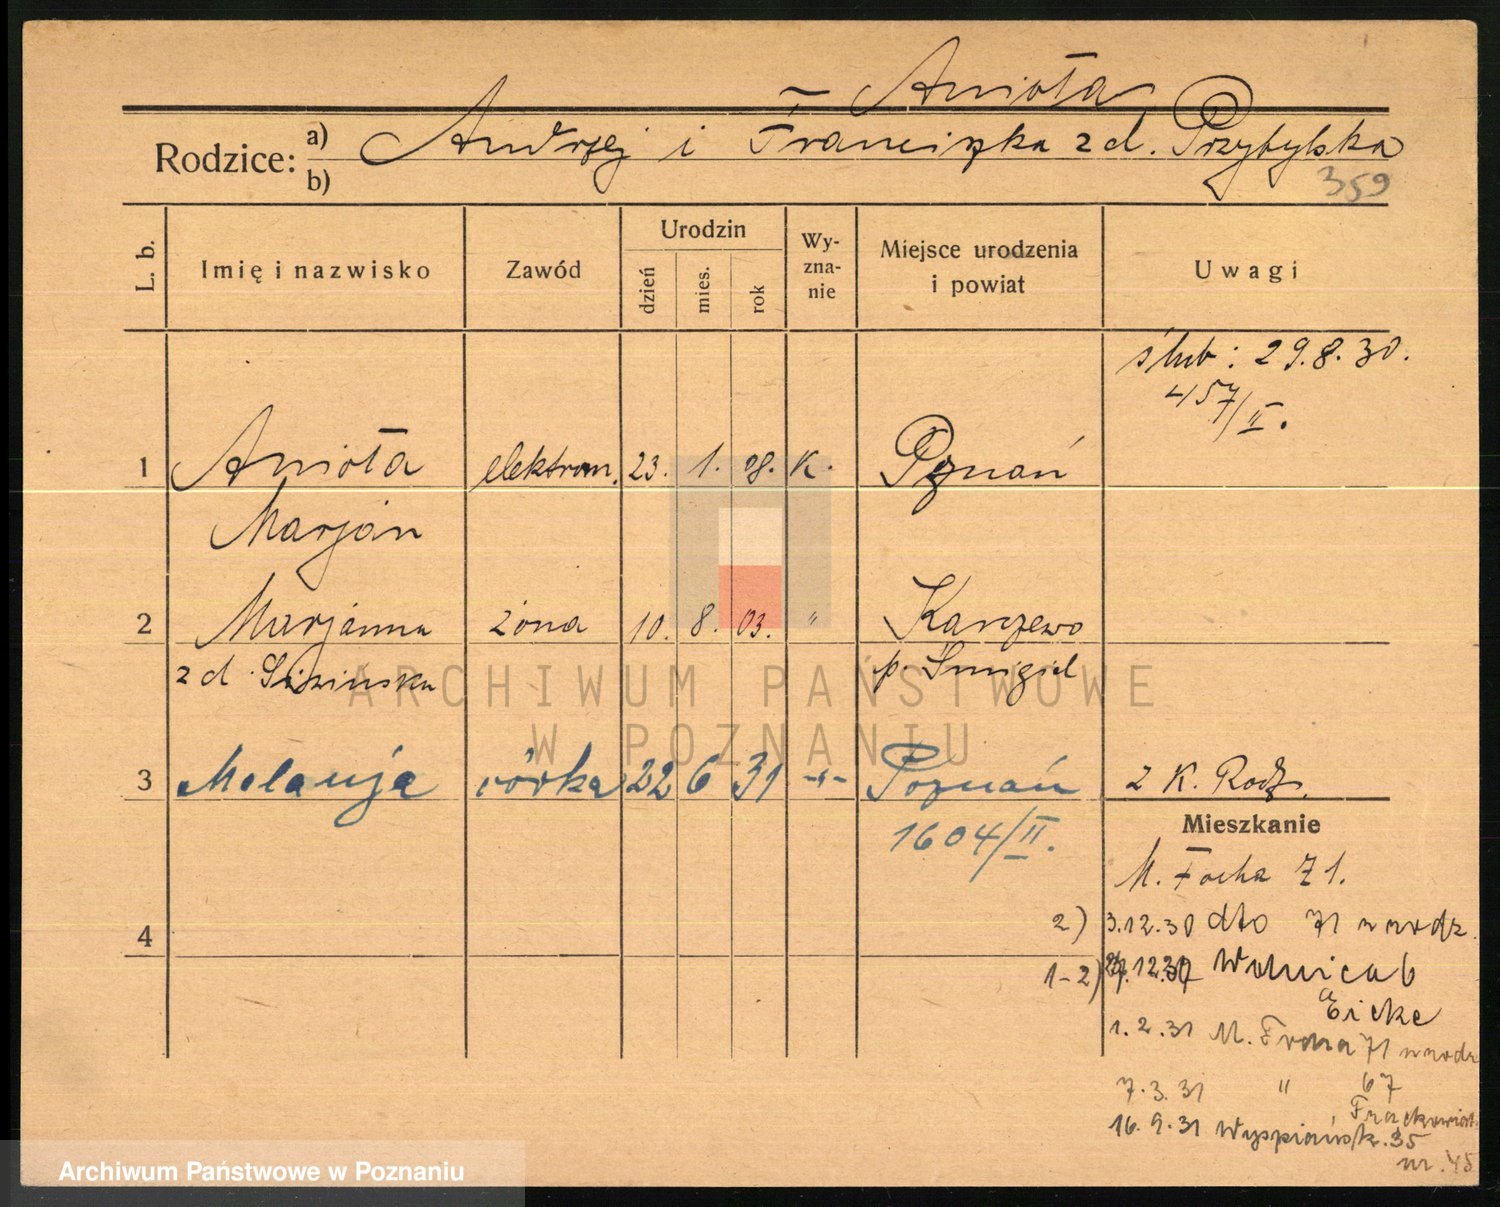 Anioła
Rodzice: a) Andrzej i Franciszka z d. Przybylska
b)
359
L. b. Imię i nazwisko Zawód Urodzin dzień mies. rok Wyznanie Miejsce urodzenia i powiat Uwagi
ślub: 29.8.30.
457/II.
1 Anioła elektrom. 23. 1. 08. K. Poznań
Marjan
2 Marjanna żona 10. 8. 03. " Karczewo
z d. p. Śmigiel
3 Melanja córka 22 6 31 -"- Poznań z K. Rodz.
1604/II.
Mieszkanie
M. Focha 71.
4
2) 3.12.30 dto 71 u rodz.
1-2) 12.30 Wolnica 6
Eicke
1.2.31 M. Focha 71 u rodz
7.3.31 " 67
Frąckowiak
16.9.31 Wyspiańsk. 35
m. 45
ARCHIWUM PAŃSTWOWE
W POZNANIU
Archiwum Państwowe w Poznaniu